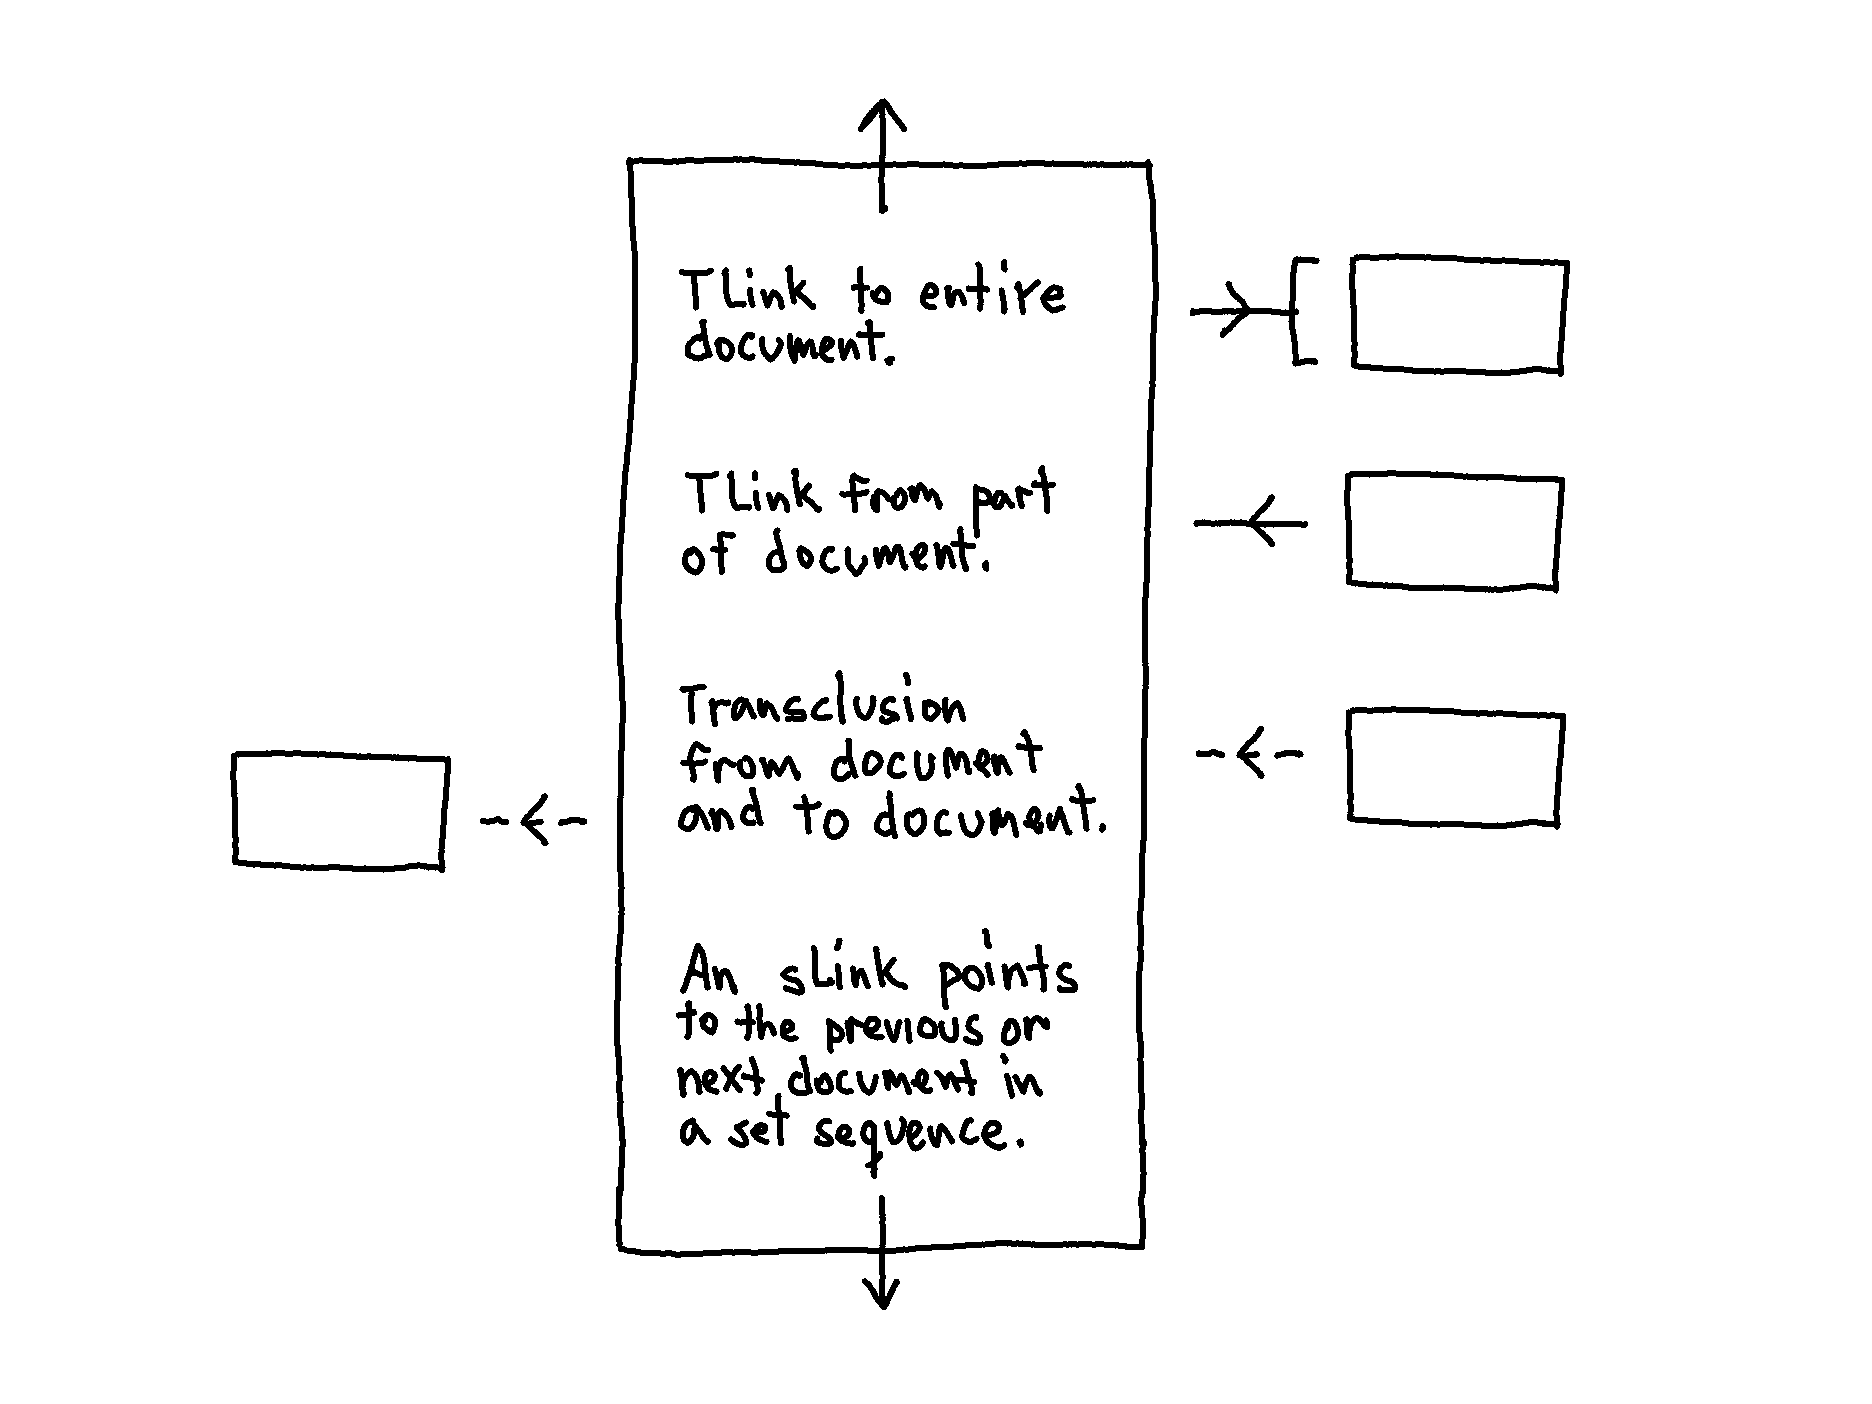 TLink to entire
document.
TLink from part
of document.
Transclusion
from document
and to document.
An sLink points
to the previous or
next document in
a set sequence.